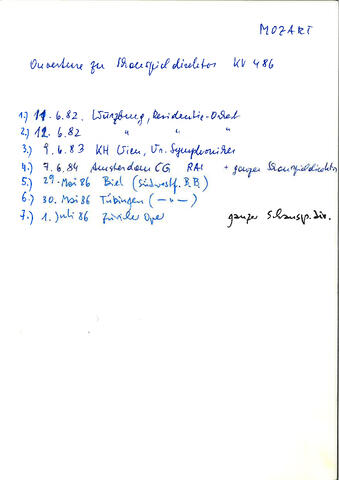 MOZART
Ouverture zu Schauspieldirektor KV 486
1.) 11.6.82. Würzburg, Residentie-Orkest
2.) 12.6.82 " " "
3.) 9.6.83 KH Wien, Wr. Symphoniker
4.) 7.6.84 Amsterdam CG RAI + ganzer Schauspieldirektor
5.) 29. Mai 86 Biel (Südwestf. )
6.) 30. Mai 86 Tübingen (—"—)
7.) 1. Juli 86 Zürcher Oper ganzer Schausp.dir.